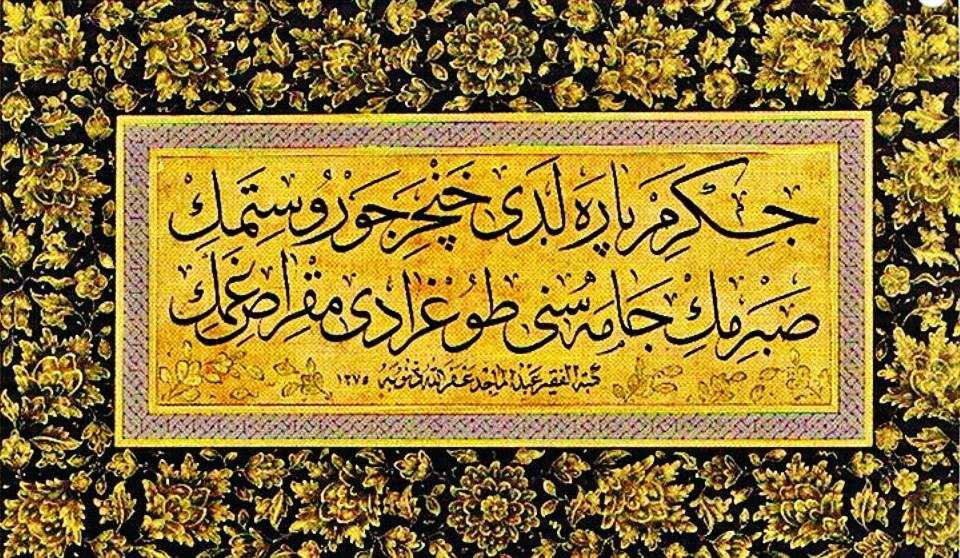 جگرم پاره لدى خنجر جور و ستمك
صبرمك جامه سنى طوغرادى مقراض غمك
كتبه الفقير عبد الماجد غفر الله ذنوبه ١٢٧٥